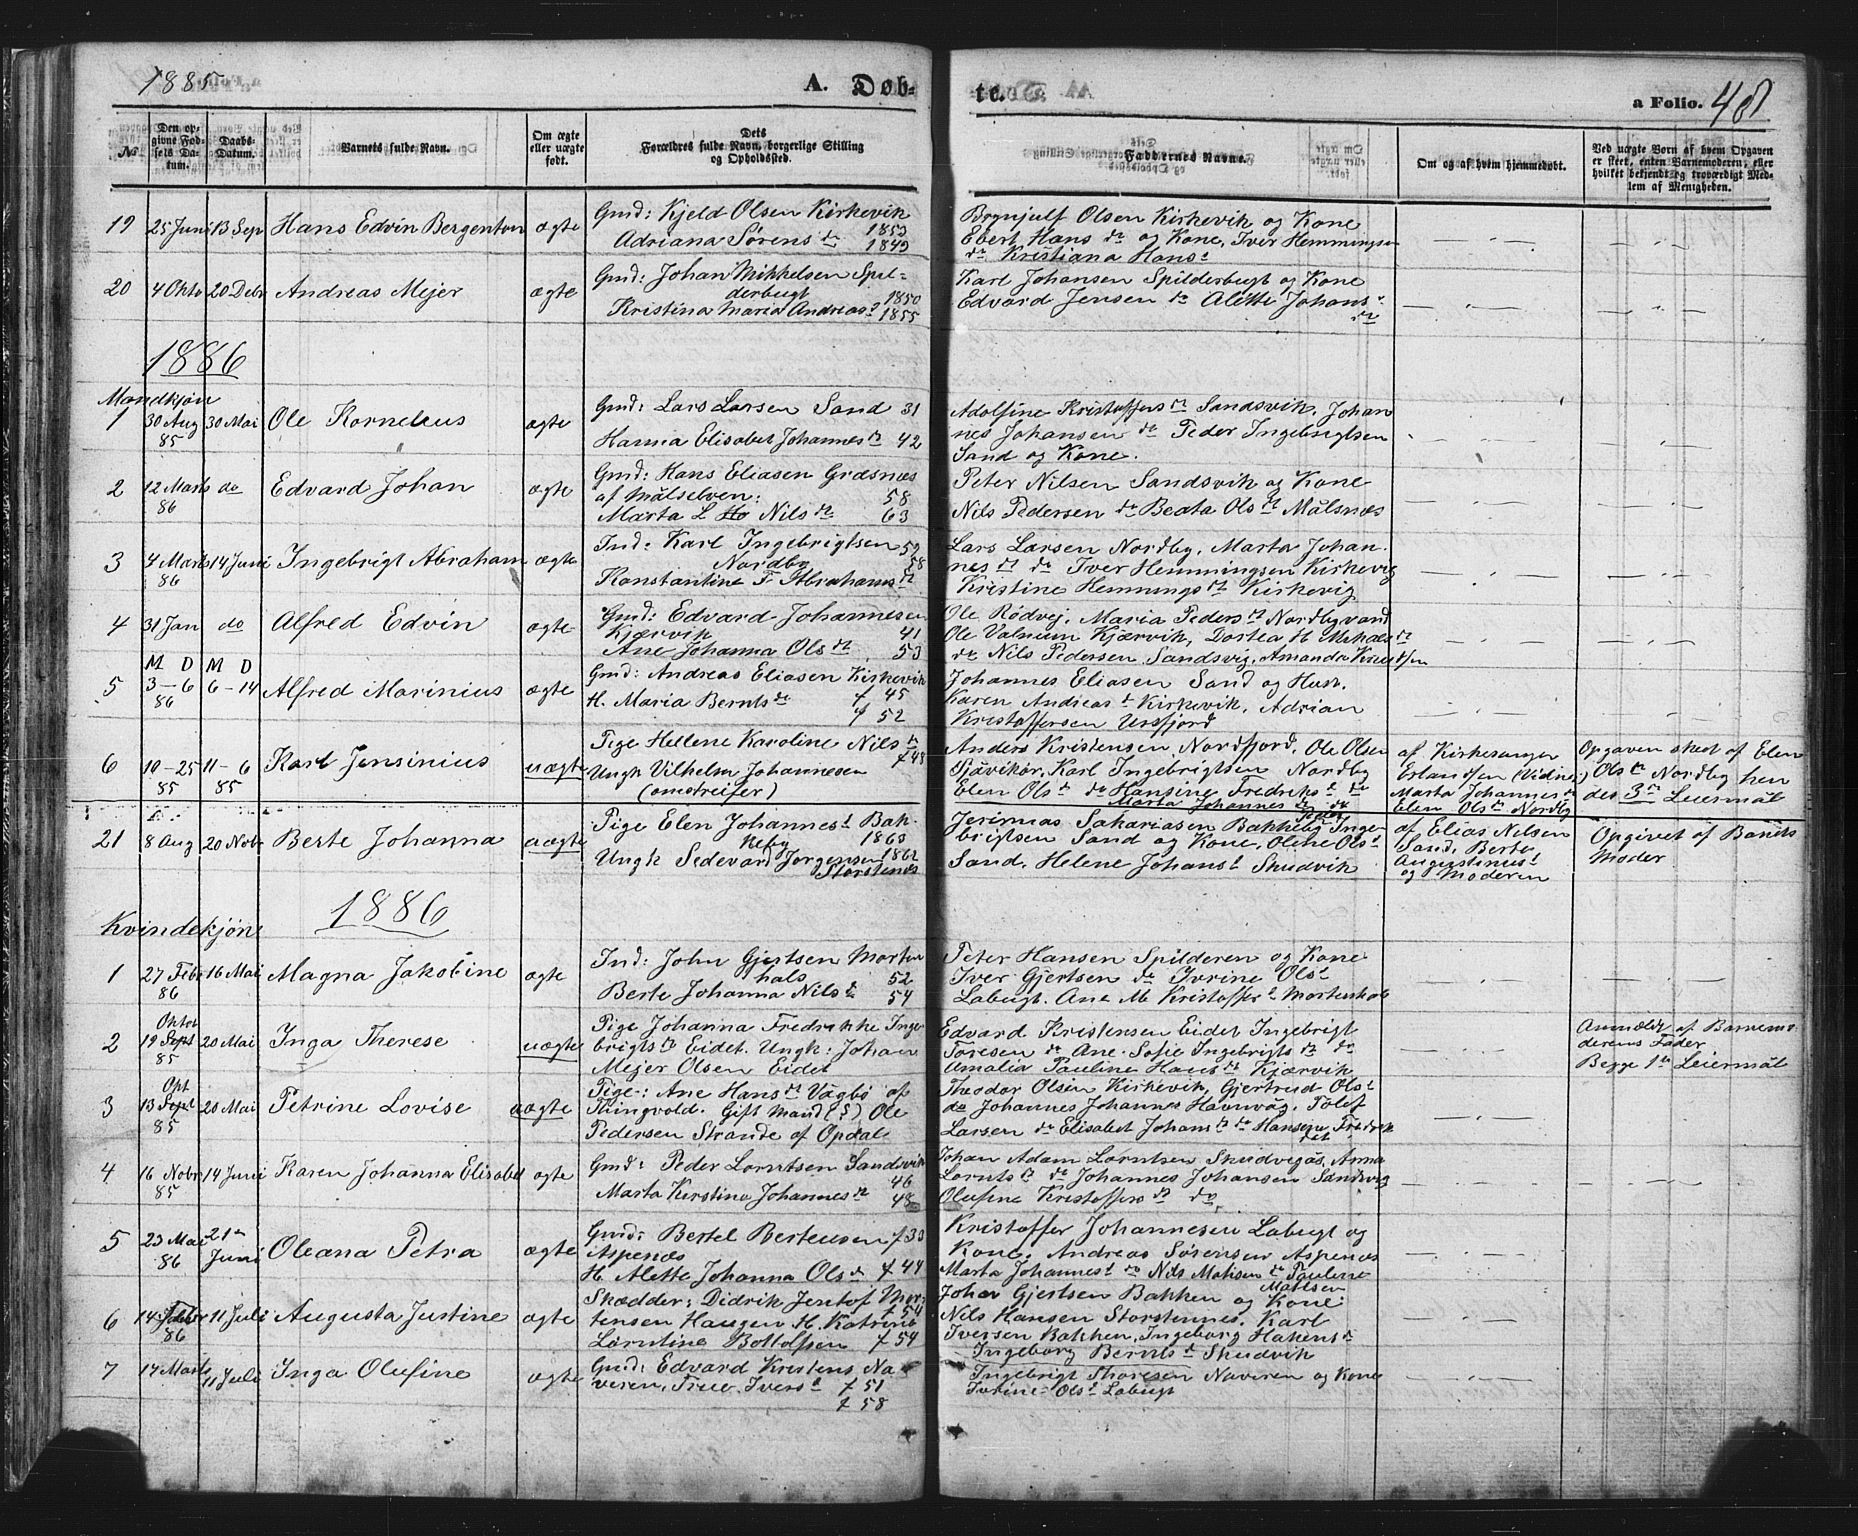 1885
A. Døb-
te.
a Folio. 48
No
Den op-
givne Fød-
sels Da-
tum.
Daabs-
Datum.
Barnets fulde Navn.
Om ægte
eller uægte
født.
Dets
Forældres fulde Navn, borgerlige Stilling
og Opholdssted.
Faddernes Navne.
Om og af hvem hjemmedøbt.
Ved uægte Børn af hvem Opgaven
er skeet, enten Barnemoderen, eller
hvilket bekjendt og troværdigt Med-
lem af Menigheden.
19 25 Juni 13 Sep Hans Edvin Bergenton ægte
Gmd: Kjeld Olsen Kirkevik 1853
Adriana Sørens dr 1849
Brynjulf Olsen Kirkevik og Kone
Ebert Hans do og Kone, Iver Hemmingsen
do Kristiana Hans d
20 4 Okto 20 Debr Andreas Mejer ægte
Gmd: Johan Mikkelsen Spil-
derbugt 1850
Kristina Maria Andreas d 1855
Karl Johansen Spilderbugt og Kone
Edvard Jensen do Alette Johans
dr
1886
Mandkjøn
1 30 Aug 85 30 Mai Ole Kornelius ægte
Gmd: Lars Larsen Sand 31
Hanna Elisabet Johannes dr 42
Adolfine Kristoffers dr Sandsvik, Johan
nes Johansen do Peder Ingebrigtsen
Sand og Kone.
2 12 Marts 86 do Edvard Johan ægte
Gmd: Hans Eliasen Græsnæs
af Målselven: 58
Marta L Nils dr 63
Peter Nilsen Sandsvik og Kone
Nils Pedersen do Beata Ols dr Målsnæs
3 4 Marts 86 14 Juni Ingebrigt Abraham ægte
Ind: Karl Ingebrigtsen 52
Nordby 58
Konstantine F Abrahams dr
Lars Larsen Nordby, Marta Johan
nes dr do Iver Hemmingsen Kirkevig
Kristine Hemmings dr Kirkevig
4 31 Jan do Alfred Edvin ægte
Gmd: Edvard Johannesen
Kjærvik 41
Ane Johanna Ols dr 53
Ole Rødvej, Maria Peders dr Nordbyvand
Ole Valnum Kjærvik, Dortea H Mikaels dr
do Nils Pedersen Sandsvig, Amanda Knudsen
M D M D
5 3-6 86 6-14 Alfred Marinius ægte
Gmd: Andreas Eliasen Kirkevik
f 45
H. Maria Bernts dr f 52
Johannes Eliasen Sand og Hust.
Karen Andreas d Kirkevik, Adrian
Kristoffersen Ursfjord
6 10-25 85 11-6 85 Karl Jensinius uægte
Pige Hellene Karoline Nils dr
f 43
Ungk Vilhelm Johannesen
(omstreifer)
Anders Kristensen Nordfjord, Ole Olsen
Sjåvikør, Karl Ingebrigtsen Nordby
Elen Ols dr do Hansine Fredriks d do
Marta Johannes dr do
af Kirkesanger
Erlandsen (Vidner:)
Marta Johannes dr
Elen Ols dr Nordby
Opgaven skeet af Elen
Ols dr Nordby hen
des 3die Leiermål
21 8 Aug 20 Nobr Berte Johanna uægte
Pige Elen Johannes d Bak-
keby 1863
Ungk Sedevard Jørgensen 1862
Storstenæs
Jerimias Sakariasen Bakkeby Peder Inge-
brigtsen Sand og Kone, Olene Ols d
Sand, Helene Johans d Skudvik
af Elias Nilsen
Sand, Berte
Augustinus d
og Moderen
Opgivet af Barnets
Moder
1886
Kvindekjøn
1 27 Febr 86 16 Mai Magna Jakobine ægte
Ind: John Gjertsen Morten
hals 52
Berte Johanna Nils d 54
Peter Hansen Spilderen og Kone
Iver Gjertsen do Ovrine Ols d
Labugt. Ane M Kristoffer d Mortenhals
2 Oktob 19 Sept 85 20 Mai Inga Therese uægte
Pige Johanna Fredrikke Inge
brigts dr Eidet. Ungk: Johan
Mejer Olsen Eidet
Edvard Kristensen Eidet Ingebrigt
Toresen do Ane Sofie Ingebrigts dr do
Amalia Pauline Hans dr Kjærvik
Anmeldt af Barnemo
derens Fader
Begge 1te Leiermål
3 Opt 13 Sept 85 20 Mai Petrine Lovise uægte
Pige: Ane Hans dr Vågbø af
Thingvold. Gift Mand (§) Ole
Pedersen Strande af Opdal
Theodor Olsen Kirkevik, Gjertrud Ols d
do Johannes Johannes Havnvåg, Tolef
Larsen do Elisabet Johans dr do Hansine Fredrik
4 16 Nobr 85 14 Juni Karen Johanna Elisabet ægte
Gmd: Peder Lorntsen Sandsvik
46
Marta Kirstina Johannes dr 48
Johan Adam Lorntsen Skudvigås, Anna
Lornts d do Johannes Johansen Sandvig
Olufine Kristoffers dr do
5 23 Mai 86 21de Juni Oleana Petra ægte
Gmd: Bertel Bertensen f 33
Aspenæs
H. Alette Johanna Ols dr f 44
Kristoffer Johannesen Labugt og
Kone. Andreas Sørensen Aspenæs
Marta Johannes d do Nils Matisen do Pauline
Matisen
6 14 Febr 86 11 Juli Augusta Justine ægte
Skædder: Didrik Jentof Mor-
f 54
tensen Haugen H. Katrine
Lorntine Bottolfsen f 54
Johan Gjertsen Bakken og Kone
Nils Hansen Storstennes, Karl
Iversen Bakken, Ingeborg Hakens dr
Ingeborg Bernts d Skudvik
7 14 Marts 11 Juli Inga Olufine ægte
Gmd: Edvard Kristens Na
veren, Trine Ivers d f 51
f 58
Ingebrigt Thoresen Naveren og Kone
Ivrine Ols d Labugt